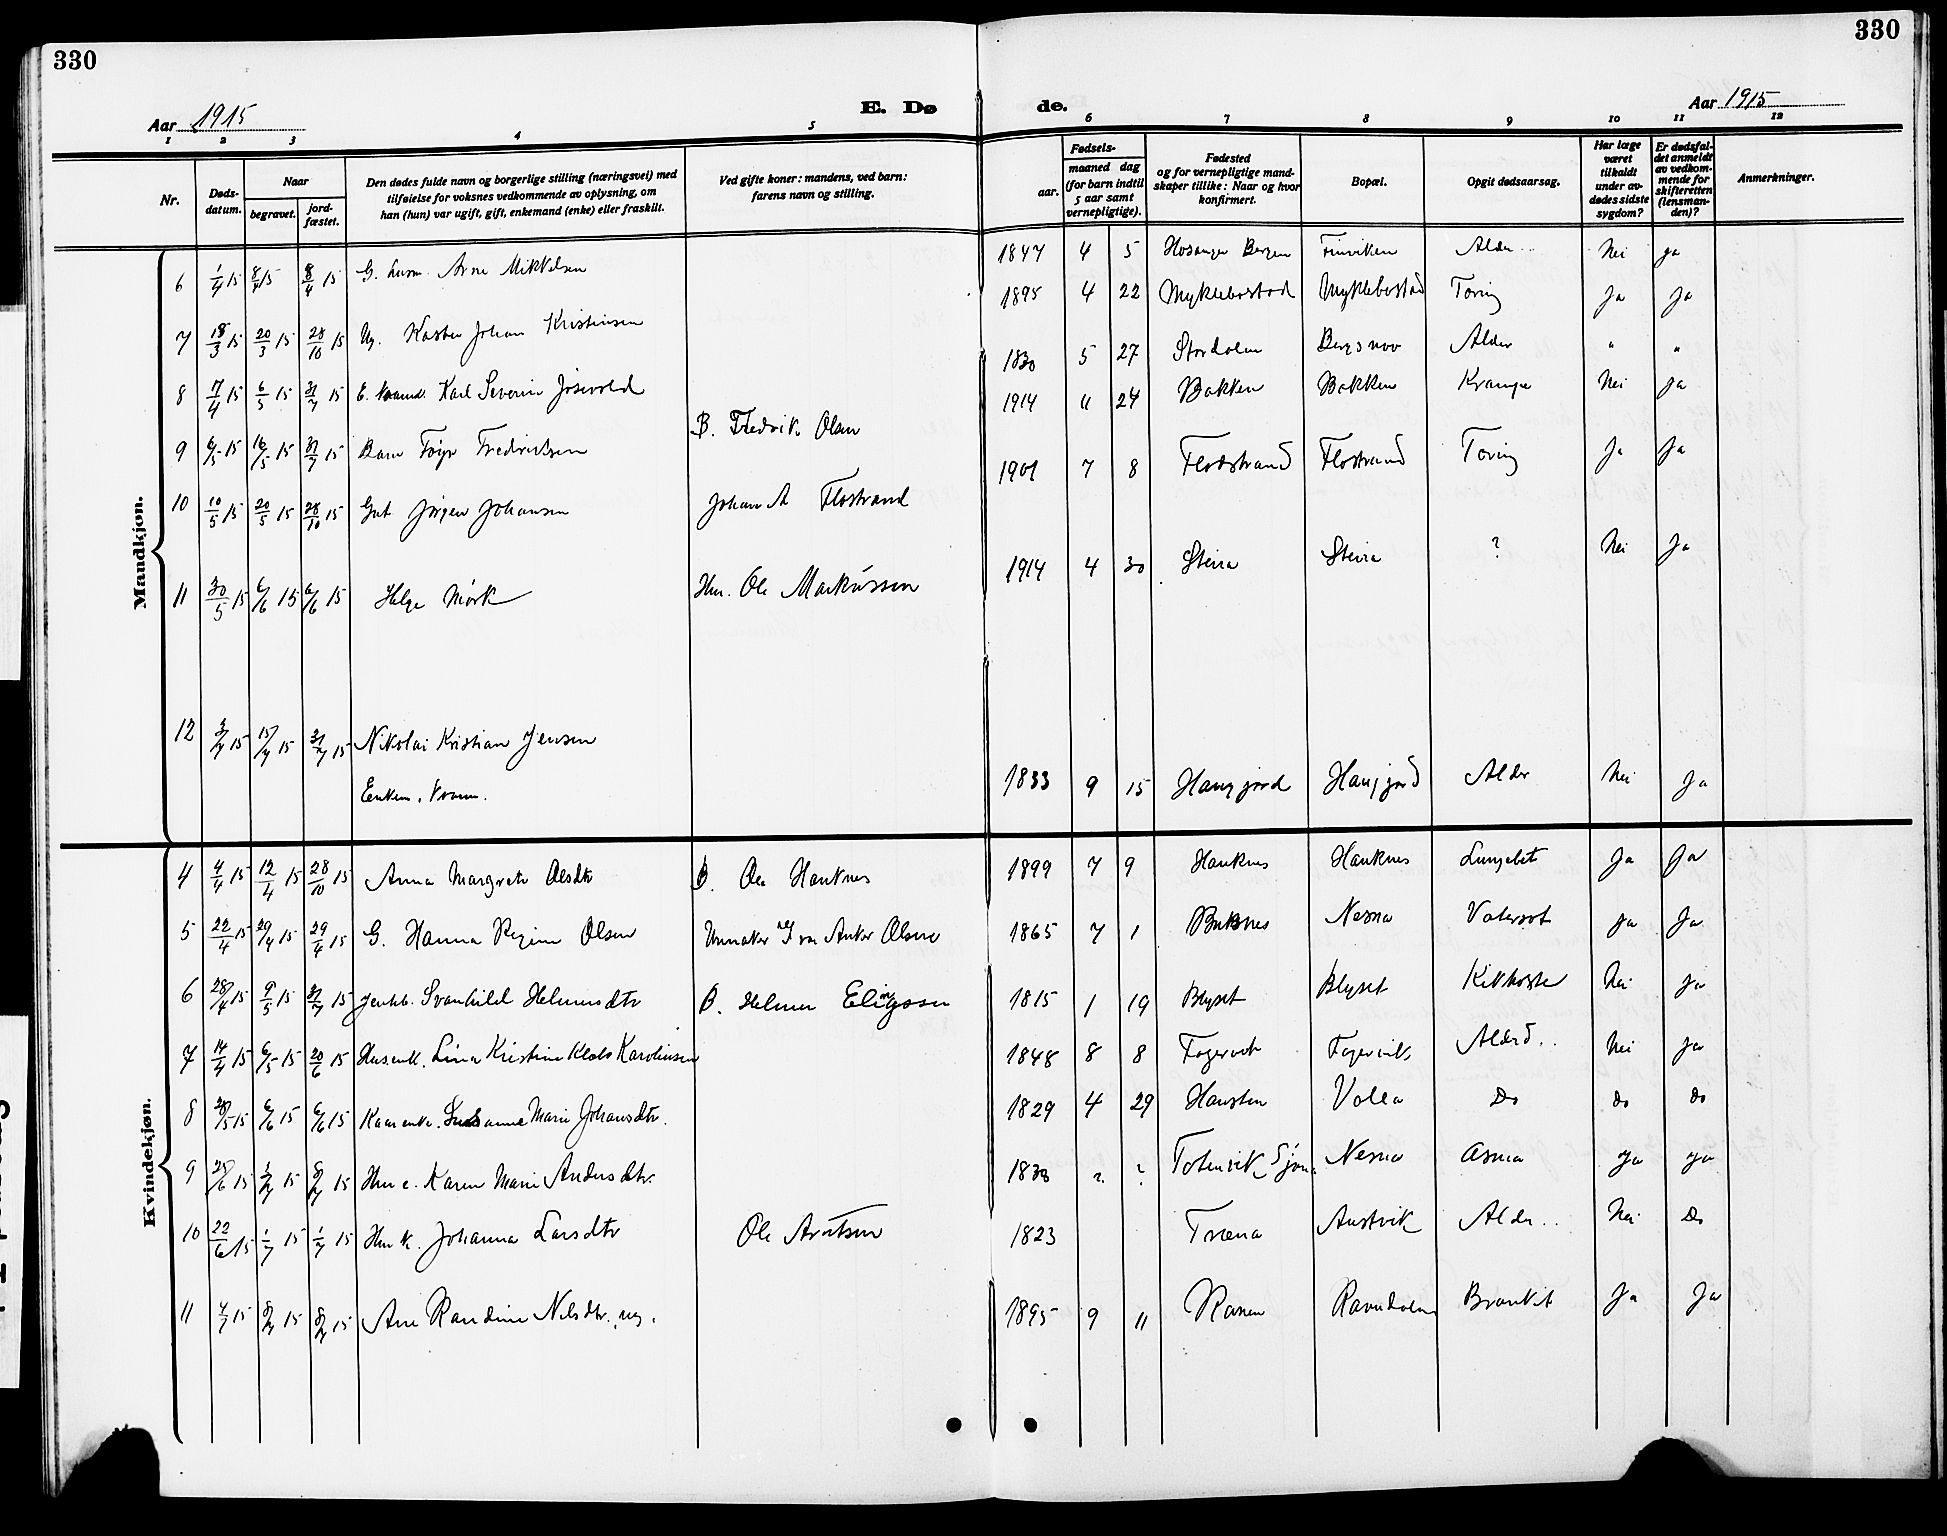 330
330
Aar 1915
E. Dø
de.
Aar 1915
1 2 3 4 5 6 7 8 9 10 11 12
Nr.
Døds-datum.
Naar
begravet.
jord-fæstet.
Den dødes fulde navn og borgerlige stilling (næringsvei) med
tilføielse for voksnes vedkommende av oplysning, om
han (hun) var ugift, gift, enkemand (enke) eller fraskilt.
Ved gifte koner: mandens, ved barn:
farens navn og stilling.
Fødsels-
aar.
maaned dag
(for barn indtil
5 aar samt
vernepligtige).
Fødested
og for vernepligtige mand-
skaper tillike: Naar og hvor
konfirmert.
Bopæl.
Opgit dødsaarsag.
Har læge
været
tilkaldt
under av-
dødes sidste
sygdom?
Er dødsfal-
det anmeldt
av vedkom-
mende for
skifteretten
(lensman-
den)?
Anmerkninger.
Mandkjøn.
6 1/4 15 8/4 15 8/4 15 G. Husm. Arne Mikkelsen 1847 4 5 Hosanger Bergen Finviken Alder.. Nei ja
7 18/3 15 20/3 15 28/10 15 Ug. Kasten Johan Kristiansen 1895 4 22 Myklebostad Myklebostad Tæring Ja Ja
8 7/4 15 6/5 15 31/7 15 E. Karl Severin 1830 5 27 Stordalen Alder " "
9 6/5 15 16/5 15 31/7 15 Barn Fredriksen B. Fredrik Olsen 1914 11 24 Bakken Bakken Krampe Nei Ja
10 10/5 15 20/5 15 28/10 15 Gut Jørgen Johansen Johan A Flostrand 1901 7 8 Flostrand Flostrand Tæring Ja Ja
11 30/5 15 6/6 15 6/6 15 Helge Mørk Hm. Ole Markussen 1914 4 30 Steira Steira ? Nei Ja
12 3/7 15 15/7 15 31/7 15 Nikolai Kristian Jensen
Enkem. 1833 9 15 Haugjord Haugjord Alder Nei Ja
Kvindekjøn.
4 4/4 15 12/4 15 28/10 15 Anna Margrete Olsdtr B. Ole Hauknes 1899 7 9 Hauknes Hauknes Lungebet Ja Ja
5 22/4 15 29/4 15 29/4 15 G. Hanna Regine Olsen Anker Olsen 1865 7 1 Buksnes Nesna Ja Ja
6 28/4 15 9/5 15 31/7 15 Svanhild Helmersdtr B. Helmer Elingssen 1815 1 19 Blyset Blyset Kikhoste Nei Ja
7 14/4 15 6/5 15 20/6 15 Husenk. Lina Kristine Klads Karolinsen 1848 8 8 Fagervik Fagervik Alderd.. Nei Ja
8 28/5 15 6/6 15 6/6 15 Kaarenke. Susanne Marie Johansdtr. 1829 4 29 Haugsten Valla Do Do Do
9 25/6 15 3/7 15 8/7 15 Hm e. Karen Marie Andersdtr. 1830 ? ? Nesna Asma Ja Ja
10 22/6 15 1/7 15 1/7 15 Hm k. Johanna Larsdtr Ole Arntsen 1823 Træna Austvik Alder.. Nei Do
11 4/7 15 8/7 15 8/7 15 Ane Randine Nilsdtr. ug. 1895 9 11 Ranen Ravndalen Bronkit Ja Ja